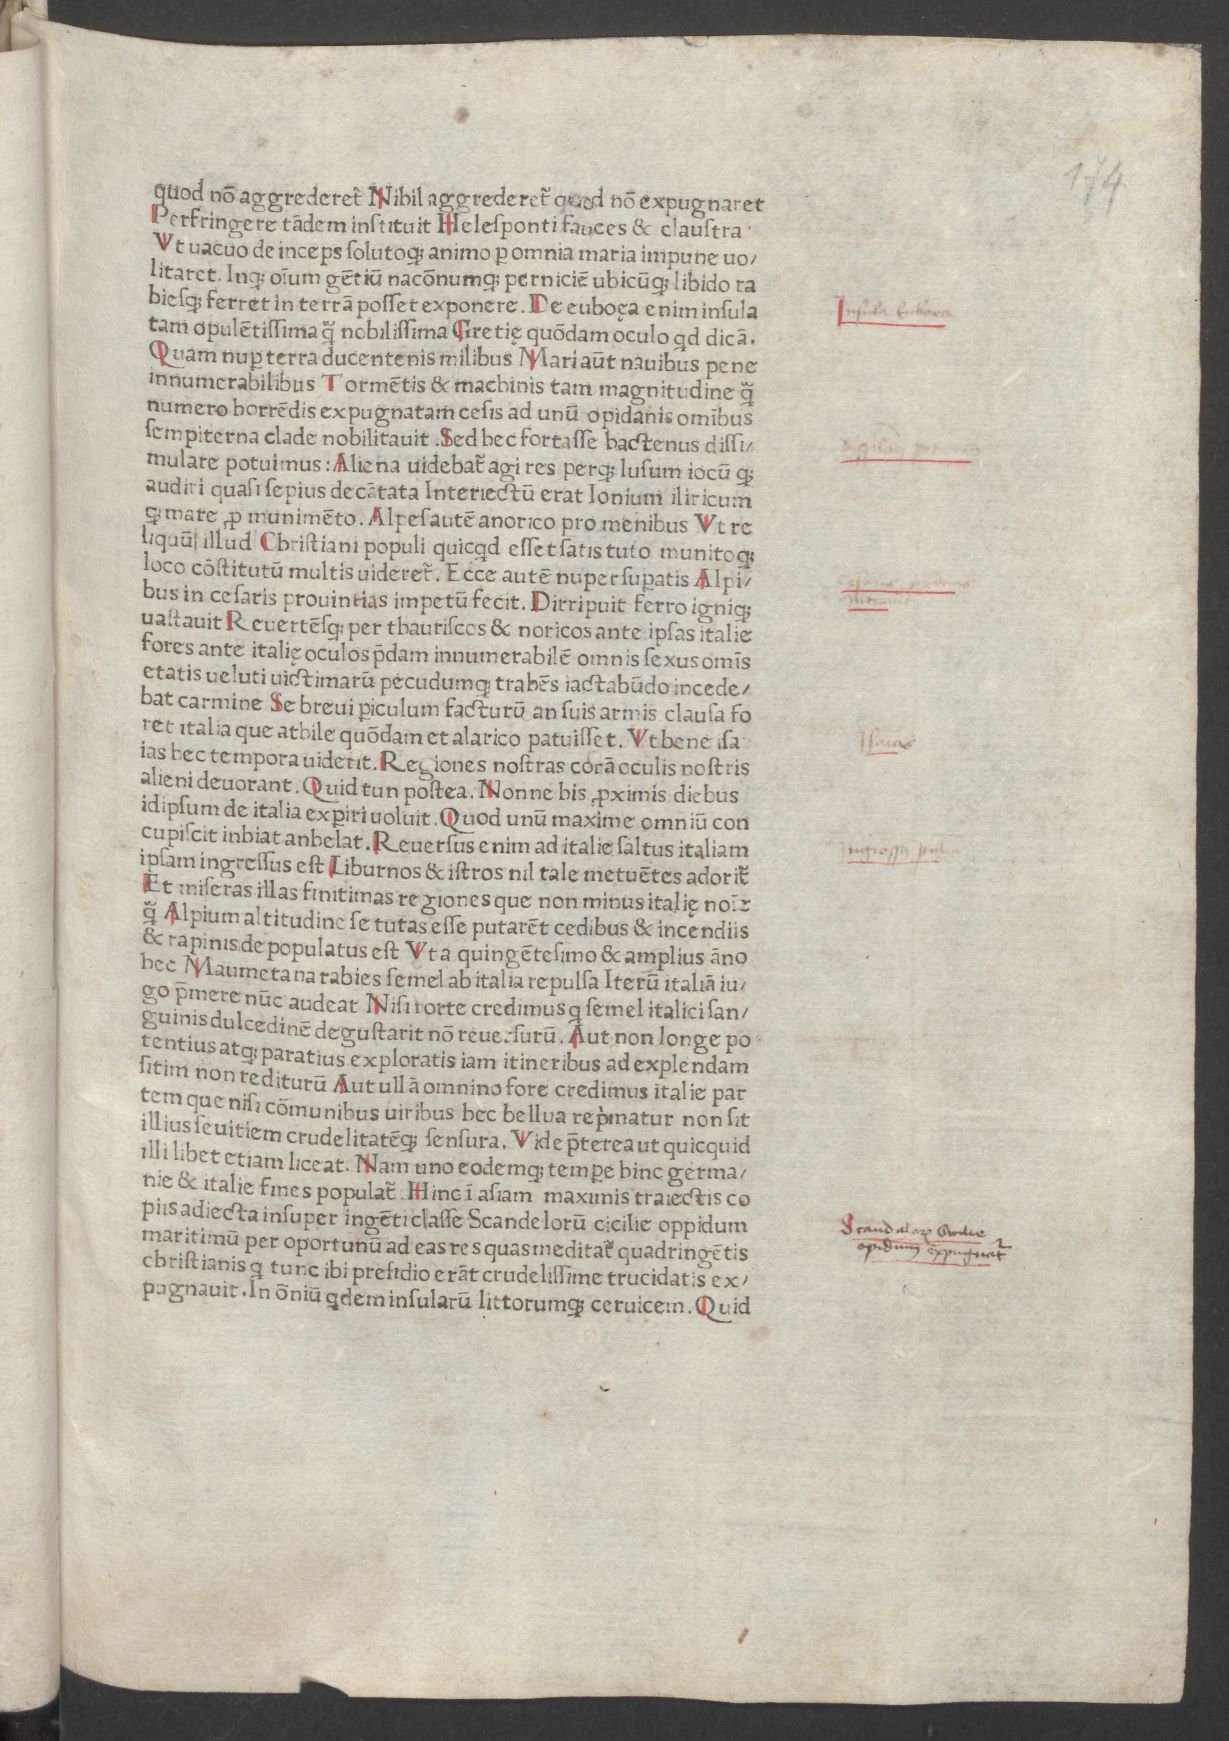 174
quod nō aggrederet᷑ Nihil aggrederet᷑ quod nō expugnaret
Perfringere tādem instituit Helesponti fauces & claustra
Vt uacuo deinceps solutoqꝫ animo ꝑ omnia maria impune uo/
litaret. Inqꝫ oīum gētiū nacōnumqꝫ perniciē ubicūqꝫ libido ra
biesqꝫ ferret in terrā posset exponere. De euboęa enim insula
tam opulētissima q̄ nobilissima Gretię quōdam oculo qd dicā.
Quam nuꝑ terra ducentenis milibus Mari aūt nauibus pene
innumerabilibus Tormētis & machinis tam magnitudine q̄
numero horrēdis expugnatam cesis ad unū opidanis omībus
sempiterna clade nobilitauit. Sed hec fortasse hactenus dissi/
mulare potuimus: Aliena uidebat᷑ agi res perqꝫ lusum iocū qꝫ
audiri quasi sepius decātata Interiectū erat Ionium iliricum
qꝫ mare ꝓ munimēto. Alpes autē anorico pro menibus Vt re
liquū illud Christiani populi quicqd esset satis tuto munitoqꝫ
loco cōstitutū multis uideret᷑. Ecce autē nuper suꝑatis Alpi/
bus in cesaris prouintias impetū fecit. Dirripuit ferro igniqꝫ
uastauit Reuertēsqꝫ per thauriscos & noricos ante ipsas italie
fores ante italię oculos p̄dam innumerabilē omnis sexus omīs
etatis ueluti uictimarū pecudumqꝫ trahēs iactabūdo incede/
bat carmine Se breui ꝑiculum facturū an suis armis clausa fo
ret italia que athile quōdam et alarico patuisset. Vt bene isa
ias hec tempora uiderit. Regiones nostras corā oculis nostris
alieni deuorant. Quid tun postea. Nonne his ꝓximis diebus
idipsum de italia exꝑiri uoluit. Quod unū maxime omniū con
cupiscit inhiat anhelat. Reuersus enim ad italie saltus italiam
ipsam ingressus est Liburnos & istros nil tale metuētes adorit᷑
Et miseras illas finitimas regiones que non minus italię noīe
q̄ Alpium altitudine se tutas esse putarēt cedibus & incendiis
& rapinis depopulatus est Vt a quingētesimo & amplius āno
hec Maumetana rabies semel ab italia repulsa Iterū italiā iu/
go p̄mere nūc audeat Nisi forte credimus q semel italici san/
guinis dulcedinē degustarit nō reuersurū. Aut non longe po
tentius atqꝫ paratius exploratis iam itineribus ad explendam
sitim non rediturū Aut ullā omnino fore credimus italie par
tem que nisi cōmunibus uiribus hec bellua rep̍matur non sit
illius seuitiem crudelitatēqꝫ sensura. Vide p̄terea ut quicquid
illi libet etiam liceat. Nam uno eodemqꝫ temꝑe hinc germa/
nie & italie fines populat᷑. Hinc ī asiam maximis traiectis co
piis adiecta insuper ingēti classe Scandelorū cicilie oppidum
maritimū per oportunū ad eas res quas meditat᷑ quadringētis
christianis q tunc ibi presidio erāt crudelissime trucidatis ex/
pugnauit. In ōniū qdem insularū littorumqꝫ ceruicem. Quid
Insula Euboea
Isaias
Ingressus
opidum expugnat᷑